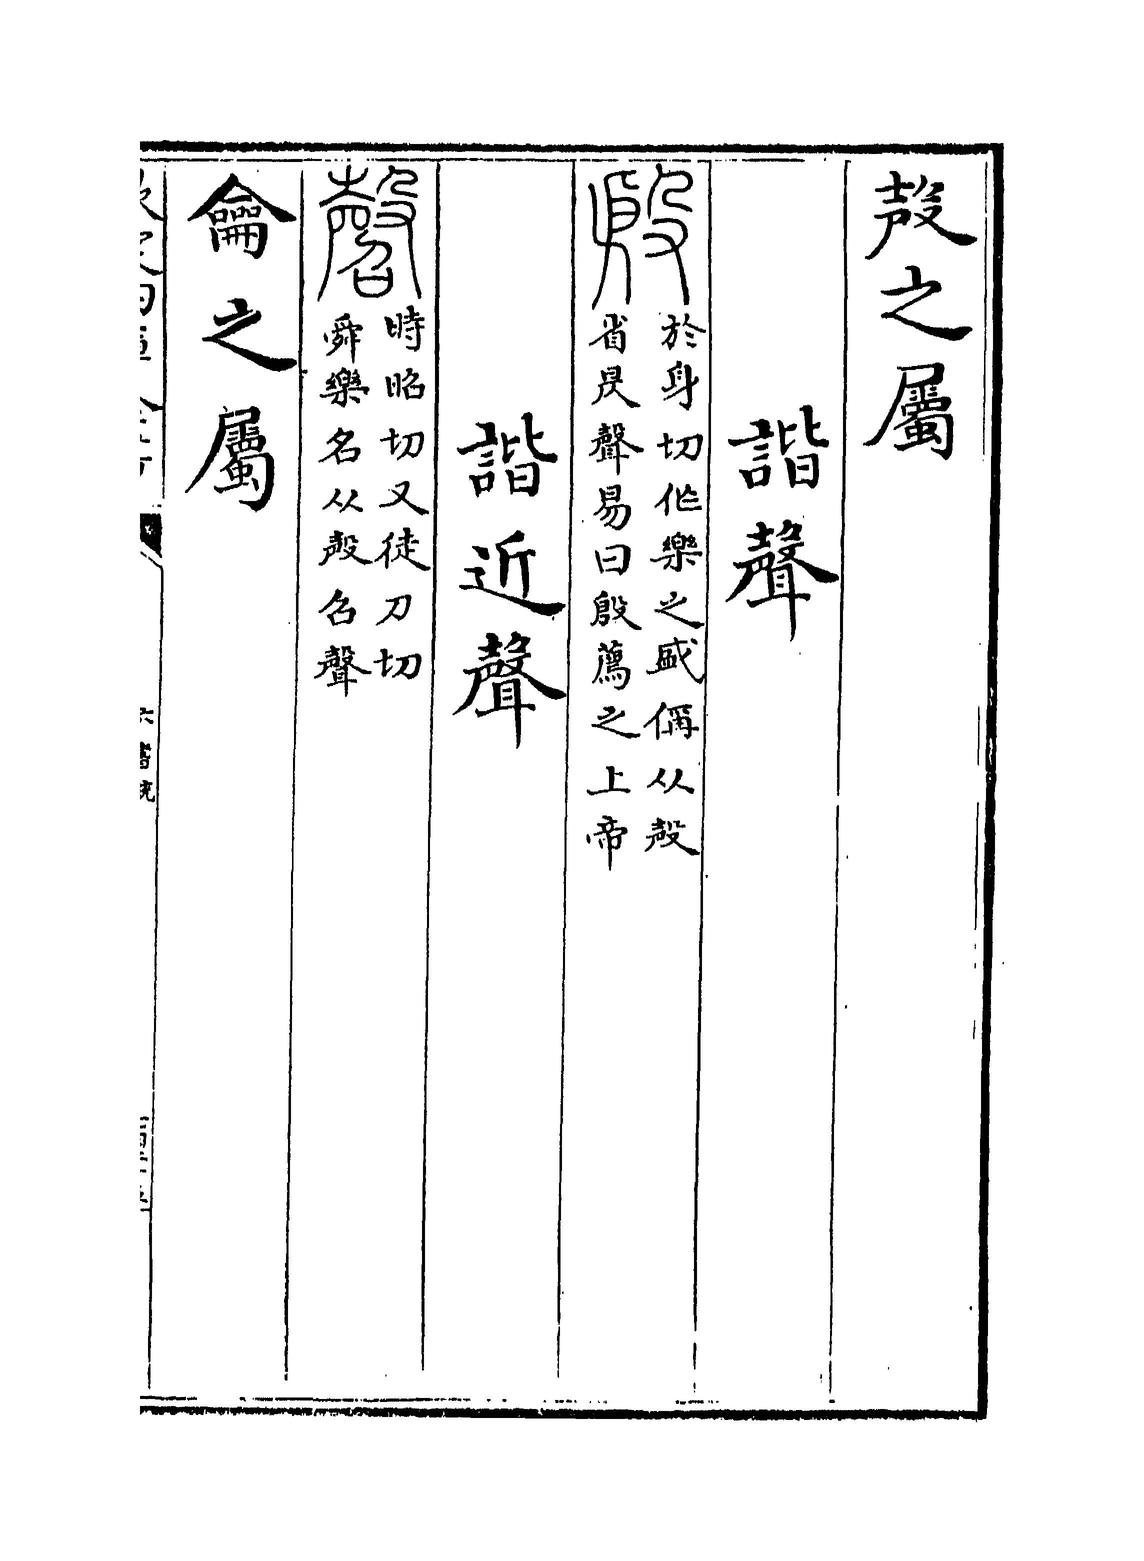 殸之屬
諧聲
殷
於身切作樂之盛偁从殸
省聲易曰殷薦之上帝
諧近聲
㲈
時昭切又徒刀切
舜樂名从殸召聲
龠之屬
六書統